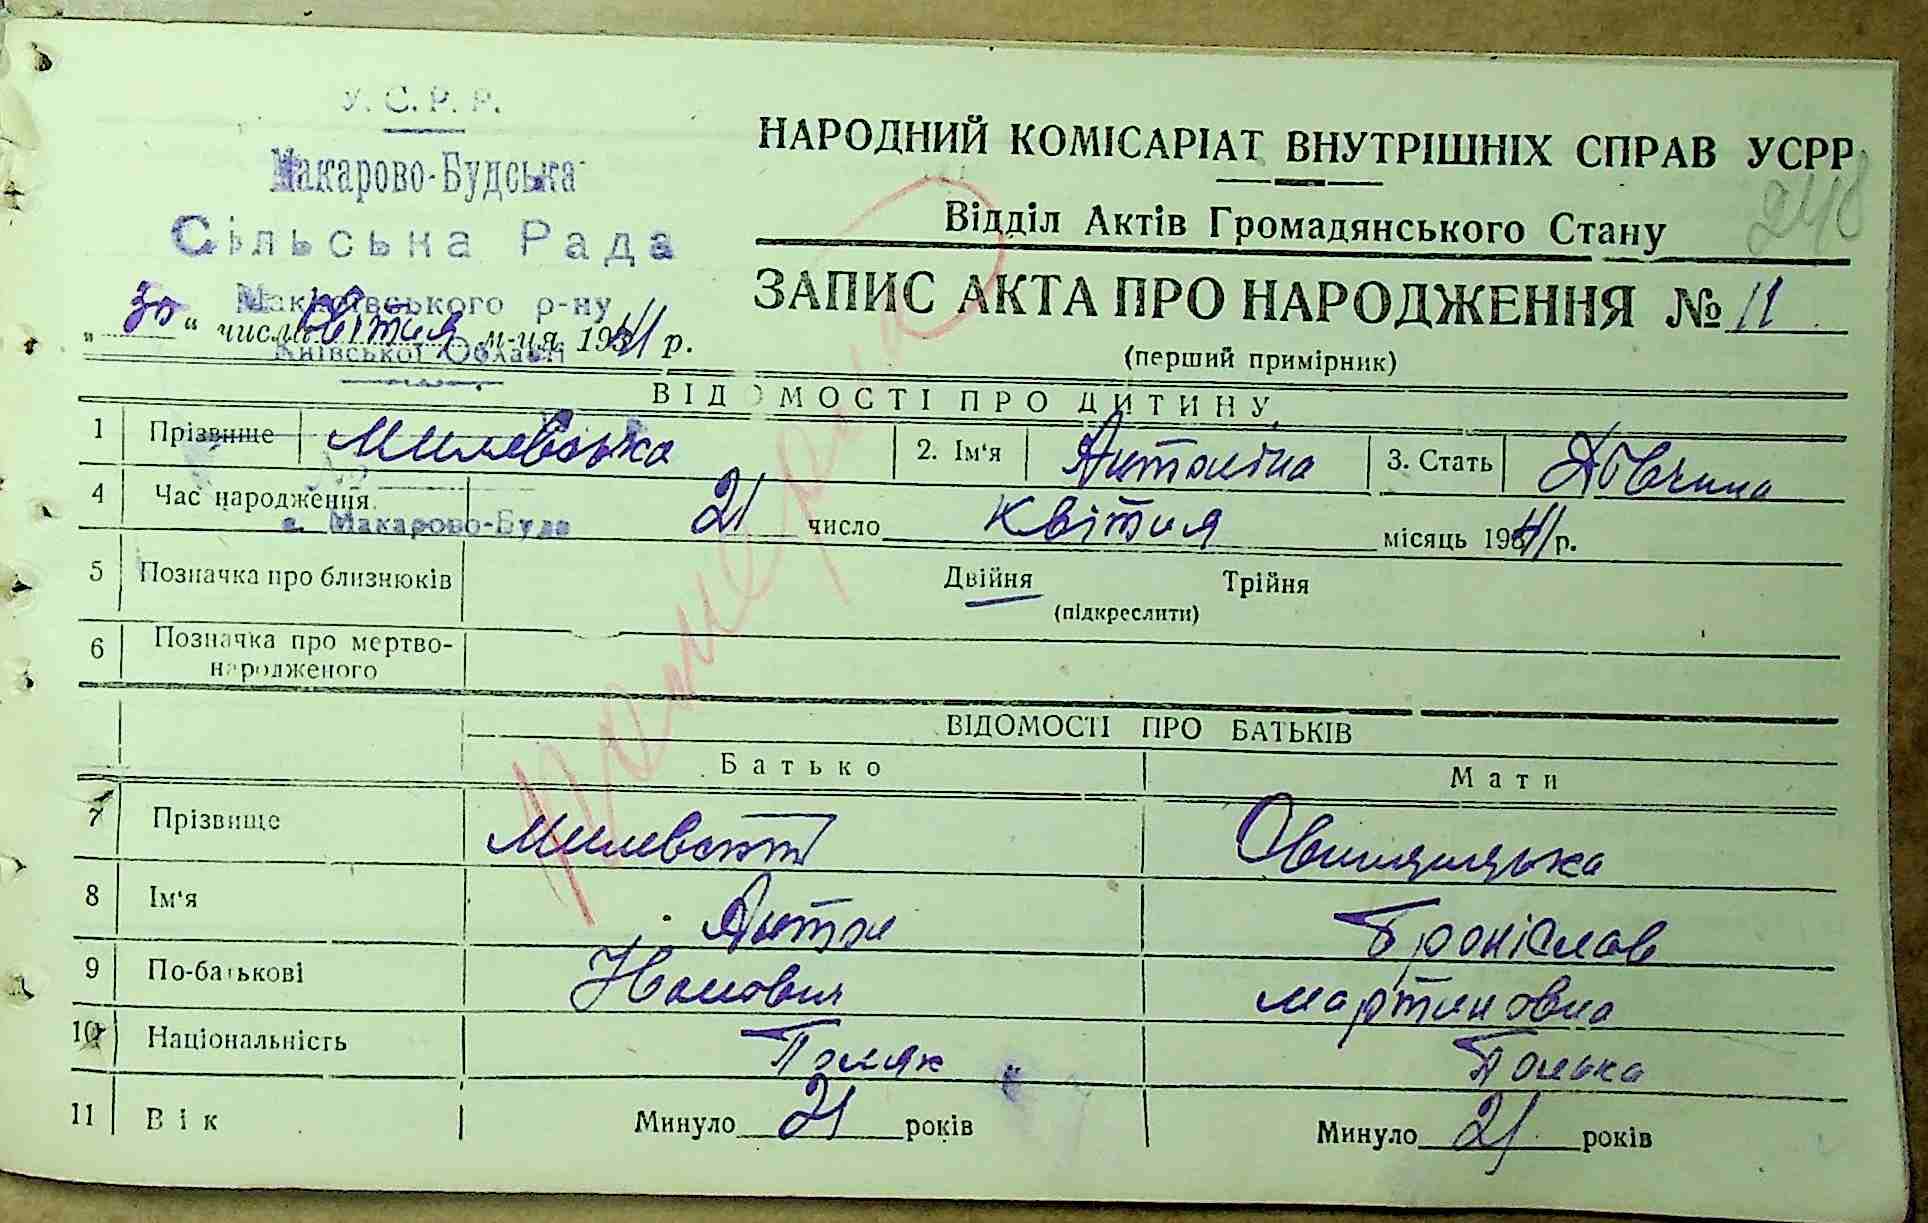 У. С. Р. Р.
Макарово-Будська
Сільська Рада
Макарівського р-ну
Київської Області
с. Макарово-Буда
НАРОДНИЙ КОМІСАРІАТ ВНУТРІШНІХ СПРАВ УСРР
248
Відділ Актів Громадянського Стану
ЗАПИС АКТА ПРО НАРОДЖЕННЯ № 11
(перший примірник)
„30“ числа Квітня м-ця 1941 р.
ВІДОМОСТІ ПРО ДИТИНУ
1 Прізвище Милевська 2. Ім'я Антоніна 3. Стать Дівчина
4 Час народження 21 число Квітня місяць 1941 р.
5 Позначка про близнюків Двійня Трійня
(підкреслити)
6 Позначка про мертво-
народженого
ВІДОМОСТІ ПРО БАТЬКІВ
Батько Мати
7 Прізвище Милевский
8 Ім'я Антон Броніслав
9 По-батькові Мартиновна
10 Національність Поляк Полька
11 Вік Минуло 21 років Минуло 21 років